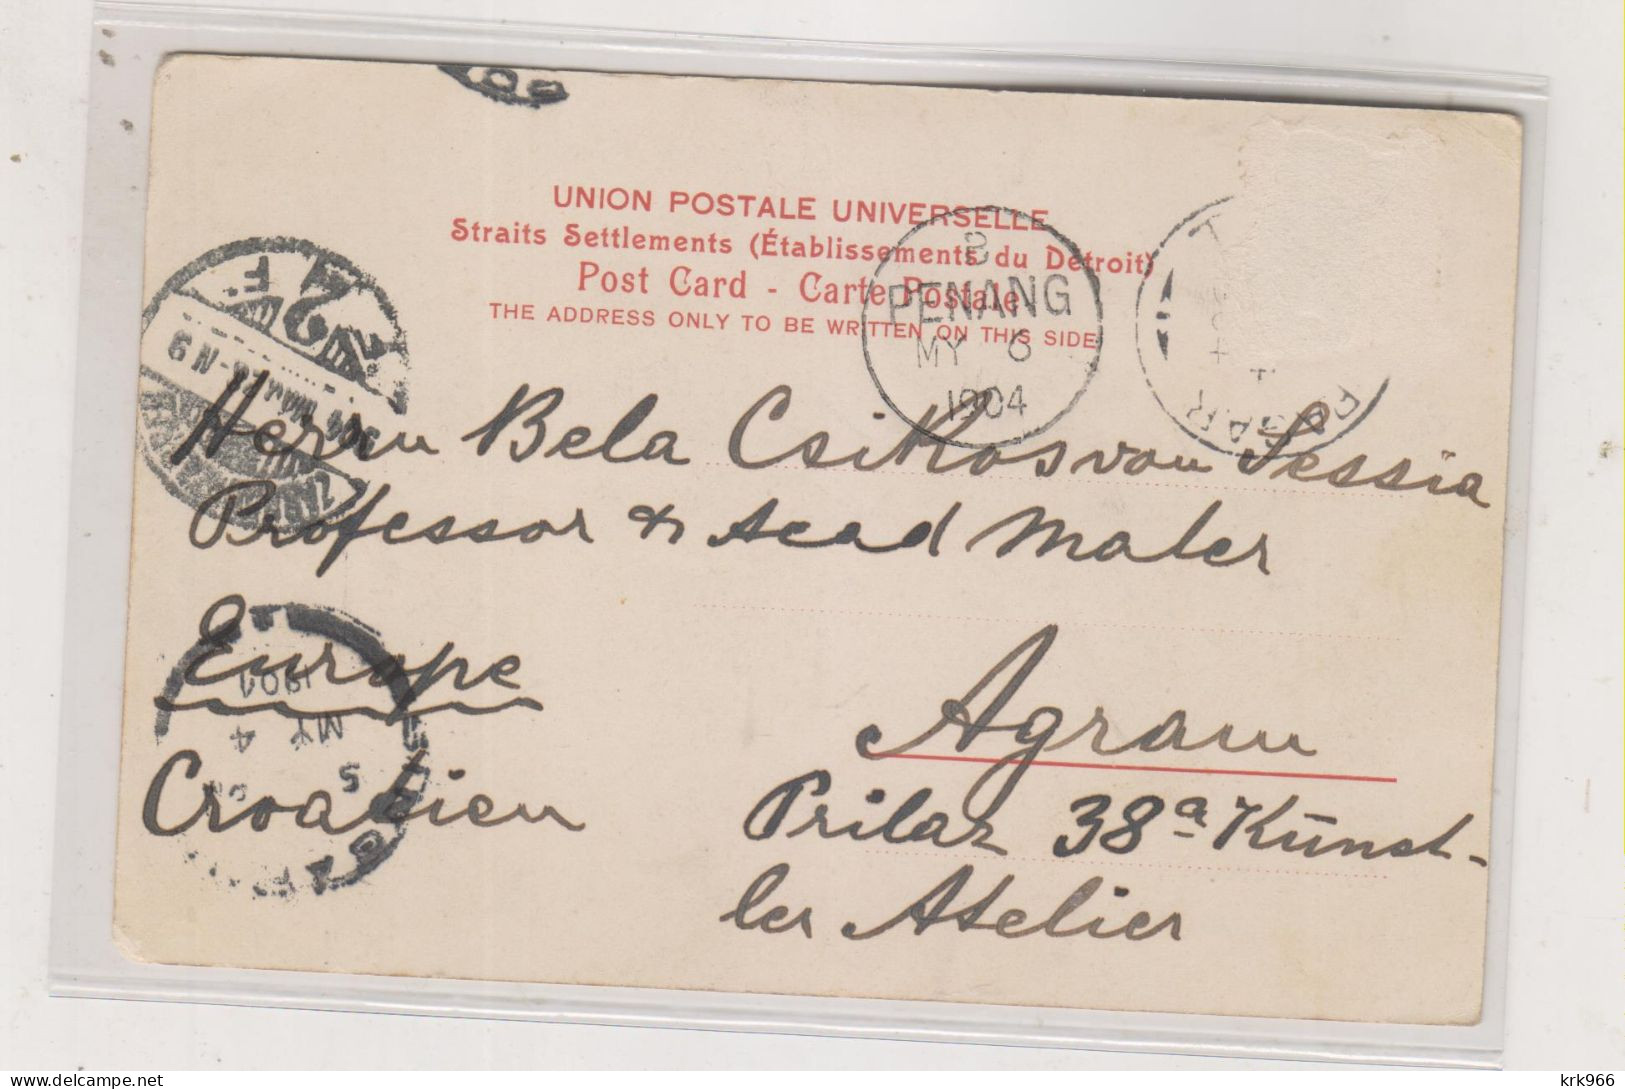 UNION POSTALE UNIVERSELLE
Straits Settlements (Établissements du Détroit)
Post Card - Carte Postale
THE ADDRESS ONLY TO BE WRITTEN ON THIS SIDE
PENANG
MY 6
1904
Herrn Bela Csikos von Sessia
Professor & Acad Maler
Europe
Croatien
Agram
Prilaz 38a Künst-
ler Atelier
MY 4
krk966